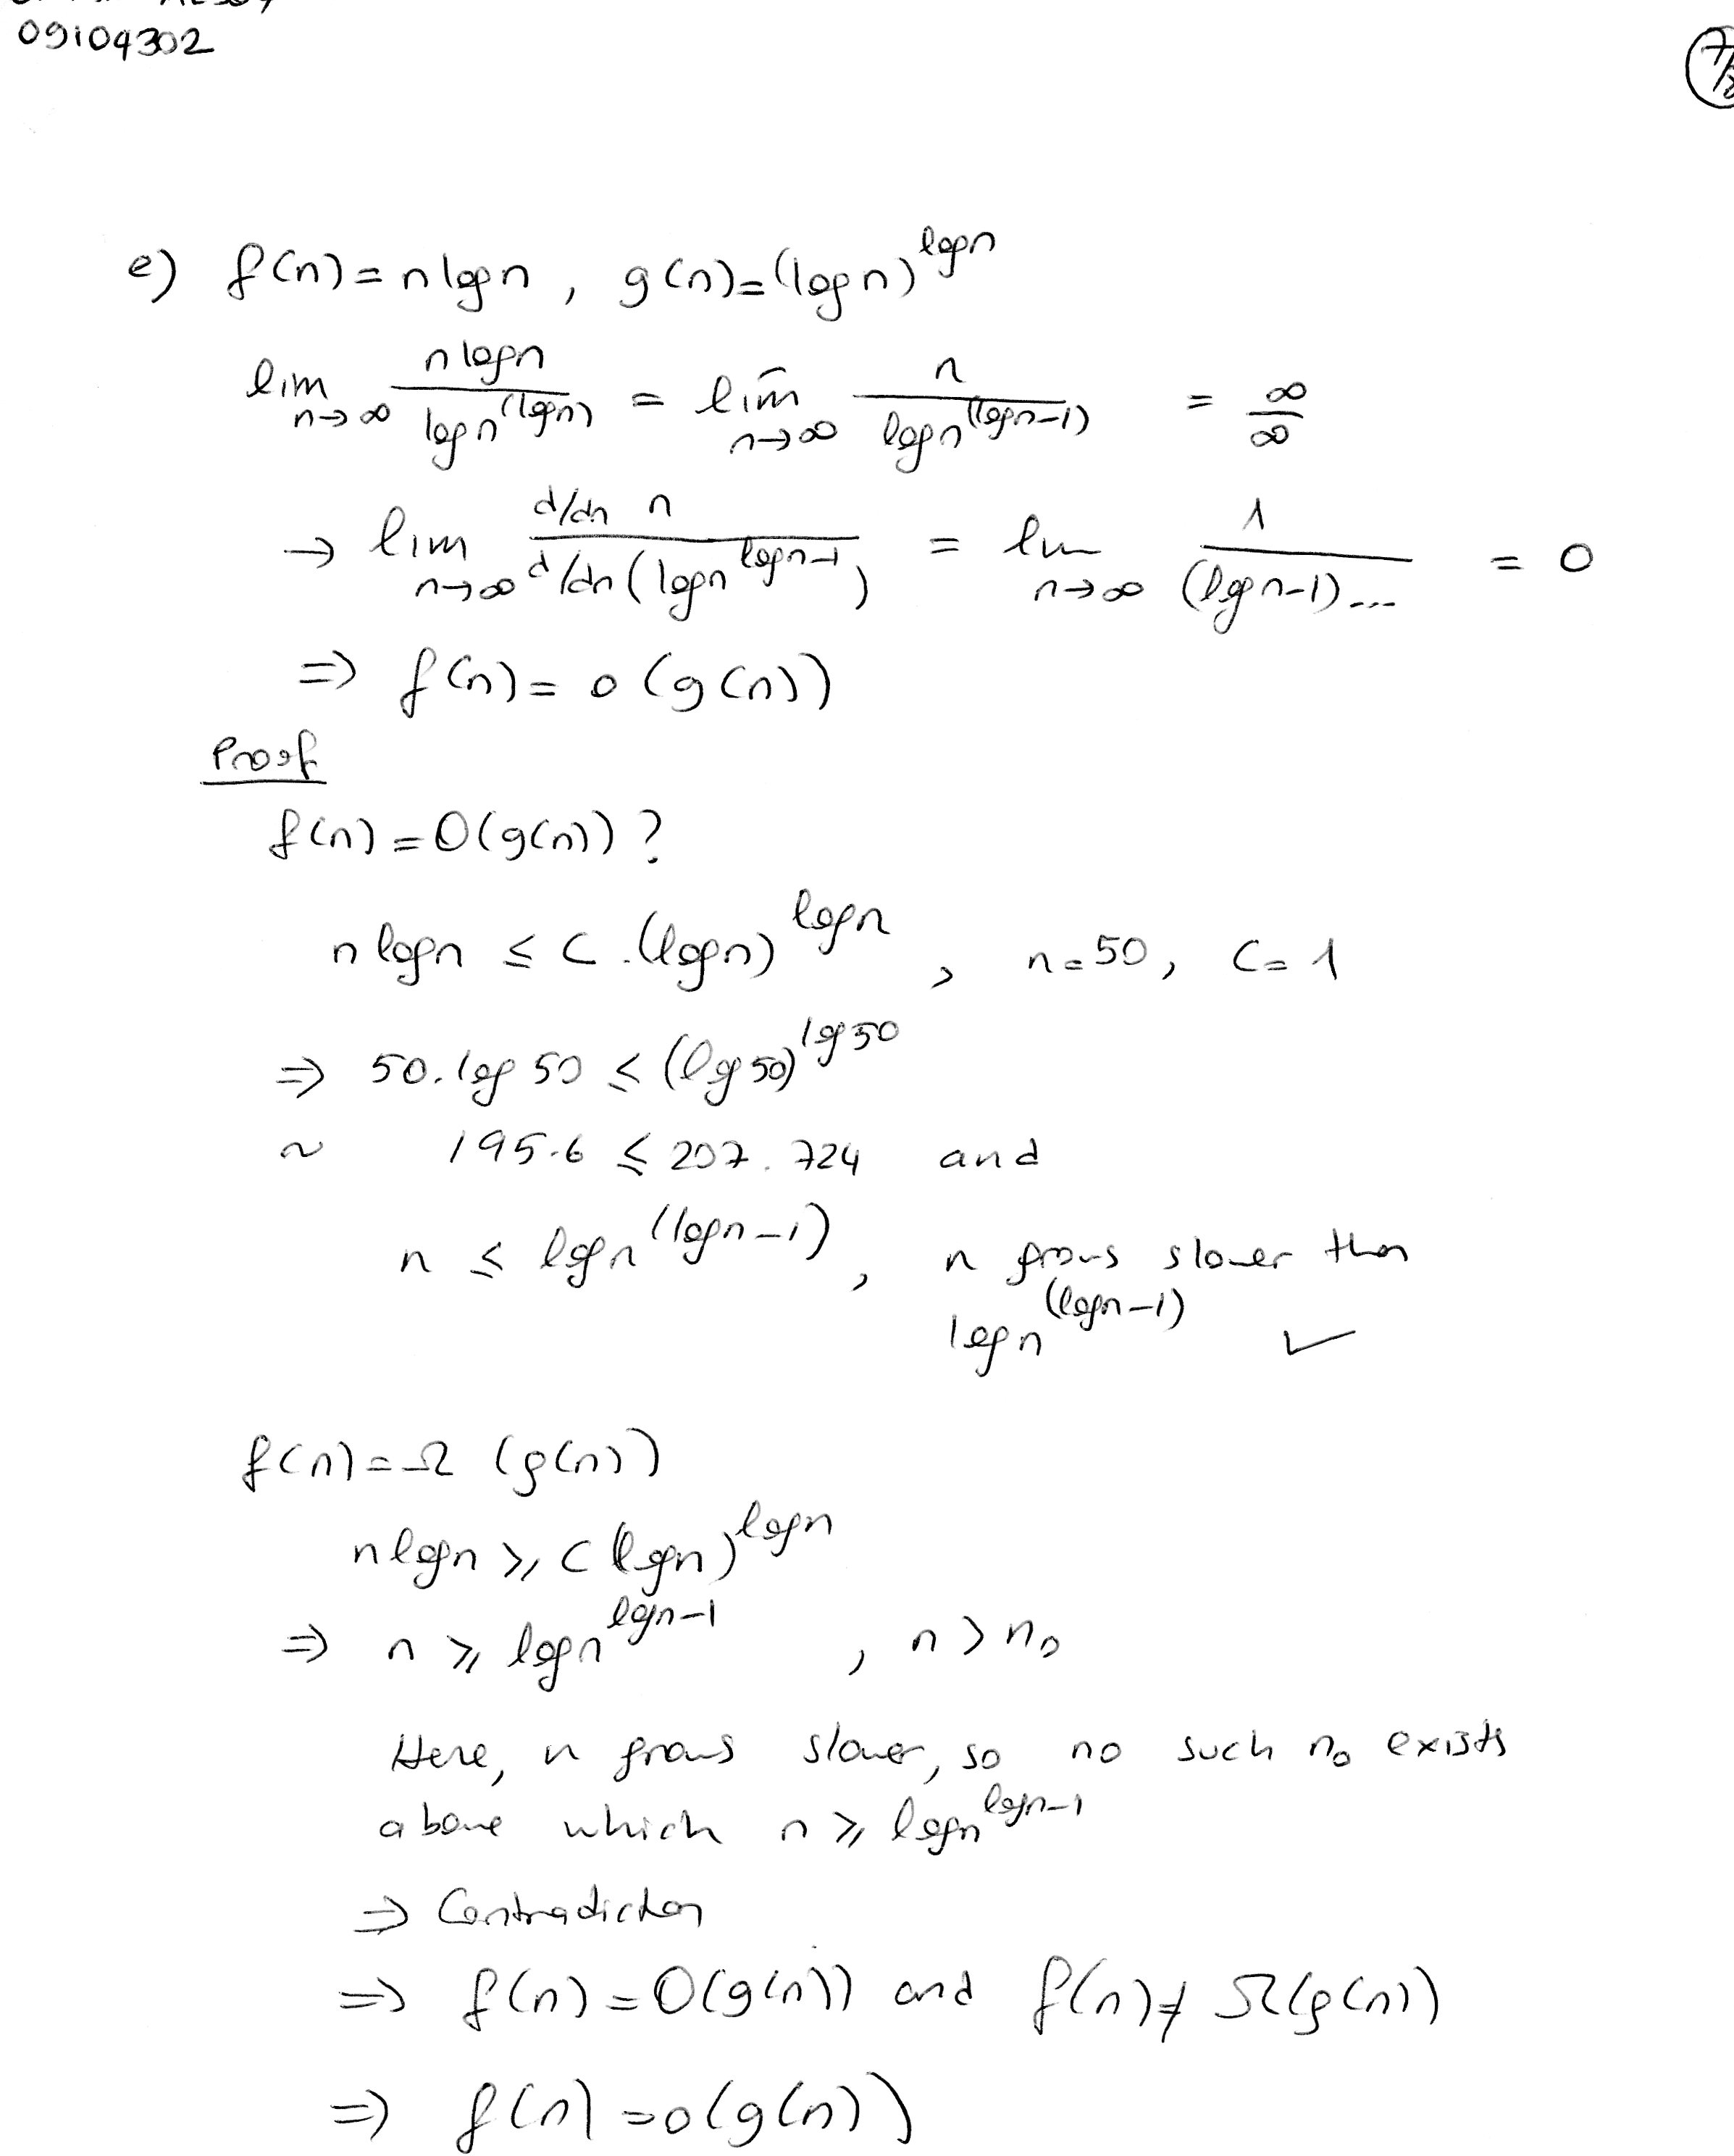 09104302
7/8
e) f(n) = n logn , g(n) = (logn)^logn
lim n→∞ n logn / logn^(logn) = lim n→∞ n / logn^(logn-1) = ∞/∞
→ lim n→∞ d/dn n / d/dn (logn^logn-1) = lim n→∞ 1 / (logn-1)... = 0
⇒ f(n) = o (g(n))
Proof
f(n) = O(g(n)) ?
n logn ≤ c . (logn)^logn , n = 50, c = 1
⇒ 50. log 50 ≤ (log 50)^log 50
~ 195.6 ≤ 207.724 and
n ≤ logn^(logn-1) , n grows slower than
logn^(logn-1) ✓
f(n) = Ω (g(n))
n logn ≥ c (logn)^logn
⇒ n ≥ logn^logn-1 , n > n₀
Here, n grows slower, so no such n₀ exists
above which n ≥ logn^logn-1
⇒ Contradiction
⇒ f(n) = O(g(n)) and f(n) ≠ Ω(g(n))
⇒ f(n) = o(g(n))